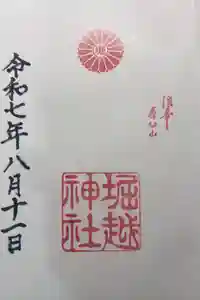 堀越
神社
令和七年八月十一日